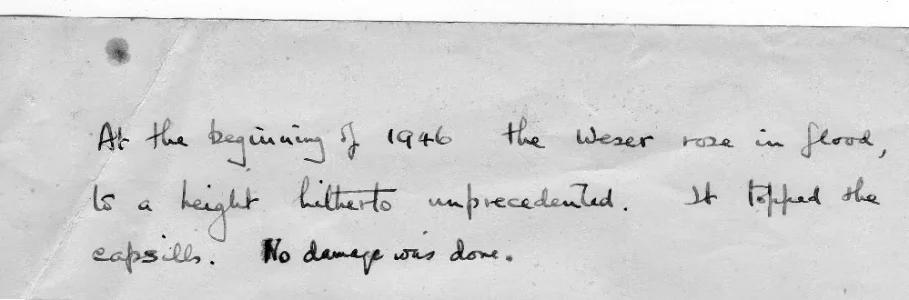 At the beginning of 1946 the Weser rose in flood,
to a height hitherto unprecedented. It topped the
capsills. No damage was done.